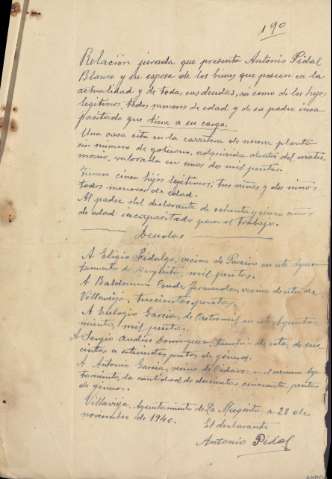 190
Relación jurada que presenta Antonio Pidal
Blanco y su esposa de los bienes que poseen en la
actualidad y de todas sus deudas, así como de los hijos
legítimos, todos menores de edad y de su padre inca
pacitado que tiene a su cargo.
Una casa sita en la carretera de
sin numero de gobierno, adquirida dentro del matri
monio, valorada en unas dos mil pesetas.
Tienen cinco hijos legítimos, tres niñas y dos niños
todos menores de edad.
Al padre del declarante de ochenta y cinco años
de edad incapacitado para el trabajo.
Deudas
A Eligio Fidalgo, vecino de en este Ayun
tamiento de mil pesetas.
A Baldomero Fernandez, vecino de esta de
Villavieja, trescientas pesetas,
A Eulogio Garcia, de en este Ayunta
miento, mil pesetas.
A Sergio de esta, de seis
cientas a setecientas pesetas de géneros.
A Antonio Garcia, vecino de
tamiento, la cantidad de doscientas cincuenta pesetas
de géneros.
Villavieja, Ayuntamiento de La a 28 de
noviembre de 1940.
El declarante
Antonio Pidal